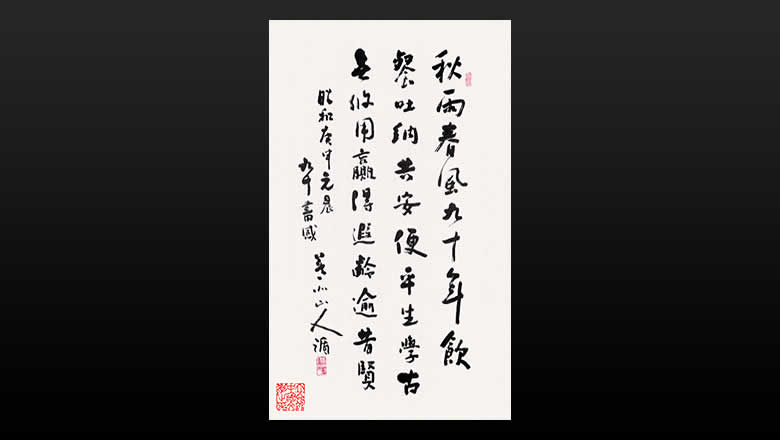 秋雨春風九十年飲
餐吐納共安便平生學古
無攸用贏得遐齡逾昔賢
昭和庚申元晨
九十書感
山人